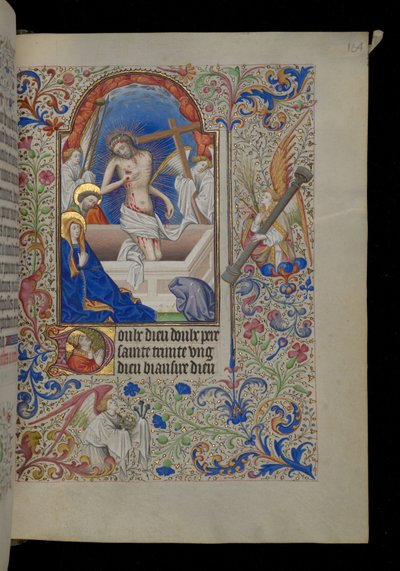 164
Doulx dieu doulx pere
sainte trinite vng
dieu biau sire dieu